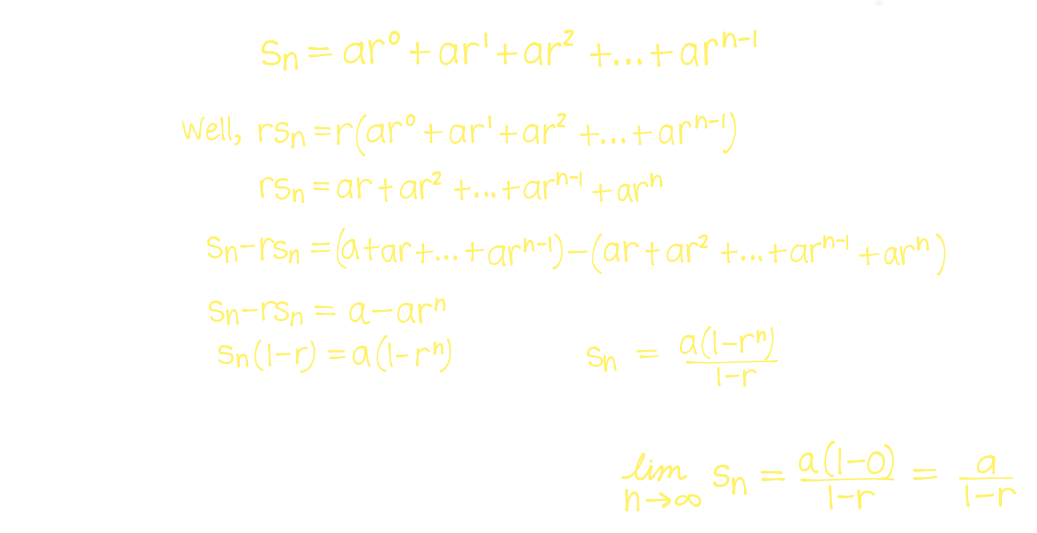 sₙ = ar⁰ + ar¹ + ar² + ... + arⁿ⁻¹
Well, rsₙ = r(ar⁰ + ar¹ + ar² + ... + arⁿ⁻¹)
rsₙ = ar + ar² + ... + arⁿ⁻¹ + arⁿ
sₙ - rsₙ = (a + ar + ... + arⁿ⁻¹) - (ar + ar² + ... + arⁿ⁻¹ + arⁿ)
sₙ - rsₙ = a - arⁿ
sₙ(1-r) = a(1-rⁿ)
sₙ = a(1-rⁿ)/1-r
lim n→∞ sₙ = a(1-0)/1-r = a/1-r